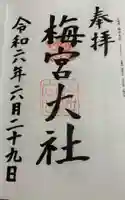 奉拝
梅宮大社
令和六年六月二十九日